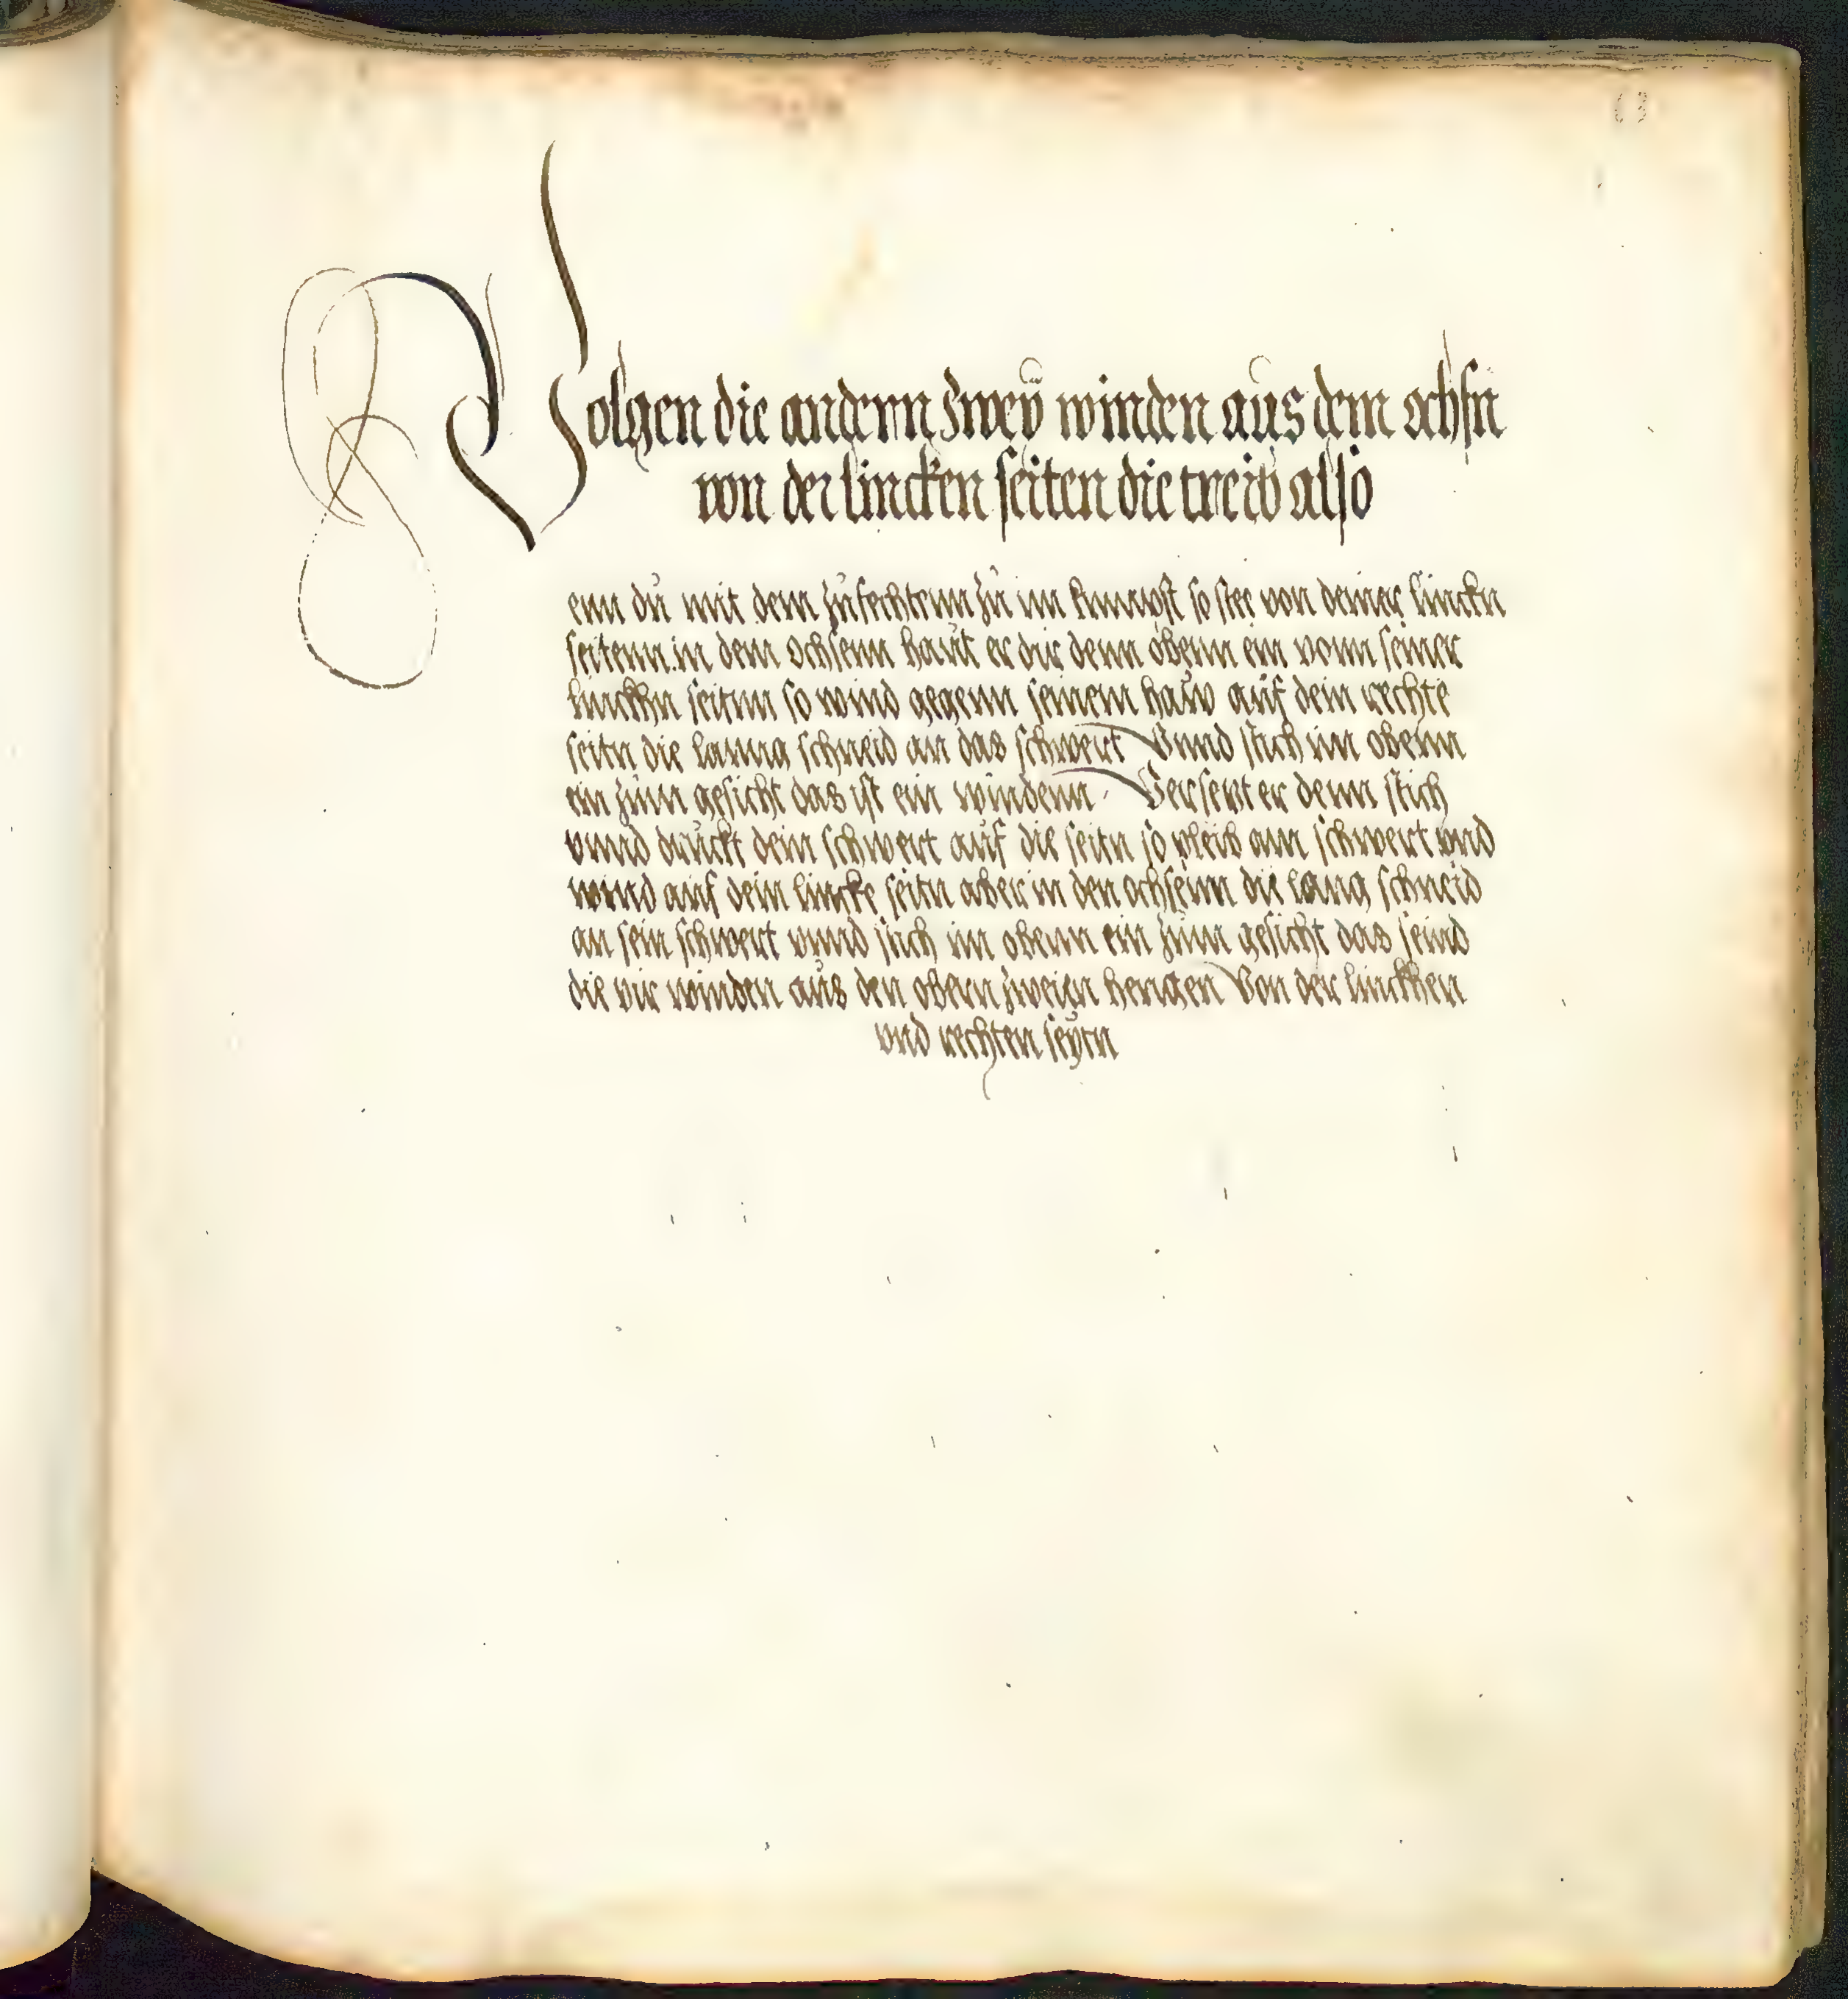 63
Volgen die andern zweÿ winden aus dem ochsn
von der lincken seiten die treib also
enn dú mit dem zúfechtenn zú im kumpst so stee von deiner linckn
seitenn in dem ochsenn haút er dir denn obenn ein vonn seiner
linckhn seitnn so wind gegenn seinem haúw aúf dein rechte
seitn die lanng schneid an das schwert Vnnd stich im obenn
ein zúm gesicht das ist ein windenn Versetzt er denn stich
vnnd drúckt dein schwert aúf die seitn so pleib am schwert vnd
wind aúf dein lincke seitn aber in den ochsenn die lang schneid
an sein schwert vnnd stich im obenn ein zúm gesicht das seind
die vir winden aús den obern zweien hengen Von der linckhen
vnd rechten seÿtn